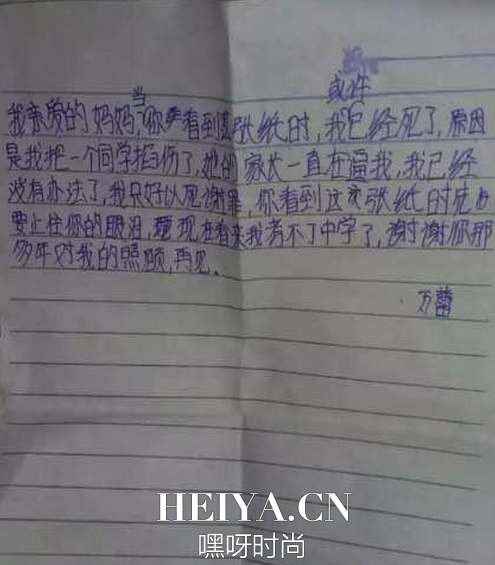 当 或许
我亲爱的妈妈,你看到这张纸时,我已经死了,原因
是我把一个同学掐伤了,她的家长一直在逼我,我已经
没有办法了,我只好以死谢罪,你看到这张纸时克
要止住你的眼泪,现在看来我考不了中学了,谢谢你那
多年对我的照顾,再见。
万蕾
HEIYA.CN
嘿呀时尚